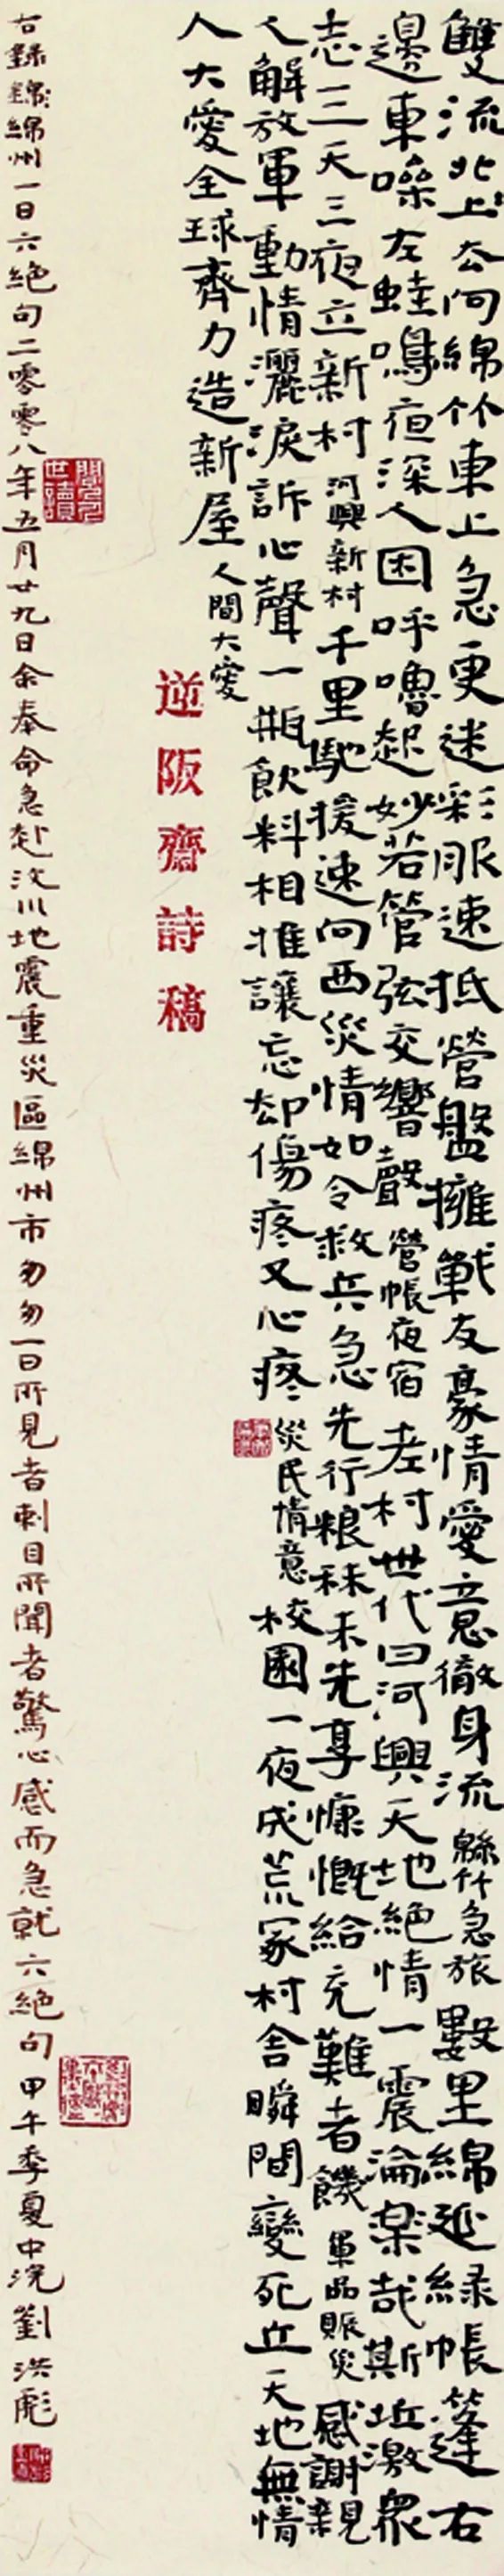 雙流北上去向綿竹東上急更迷彩服速抵營盤擁戰友豪情愛意徹身流 緜竹急旅 數里綿延緑帳篷右
邊車嗓左蛙鳴夜深人困呼嚕起妙若管弦交響聲 營帳夜宿 老村世代曰河興天地絕情一震淪樂哉斯 激衆
志三天三夜立新村 河興新村 千里馳援速向西災情如令救兵急先行粮秣未先享慷慨給充難者饑 軍品賑災 感謝親
人解放軍動情灑淚訴心聲一瓶飲料相推讓忘却傷疼又心疼 災民情意 校園一夜成荒冢村舍瞬間變死丘天地無情
人大愛全球齊力造新屋 人間大愛
逆阪齋詩稿
右録綿州一日六絕句二零零八年五月廿九日余奉命急赴汶川地震重災區綿州市匆匆一日所見者刺目所聞者驚心感而急就六絕句 甲午季夏中浣劉洪彪